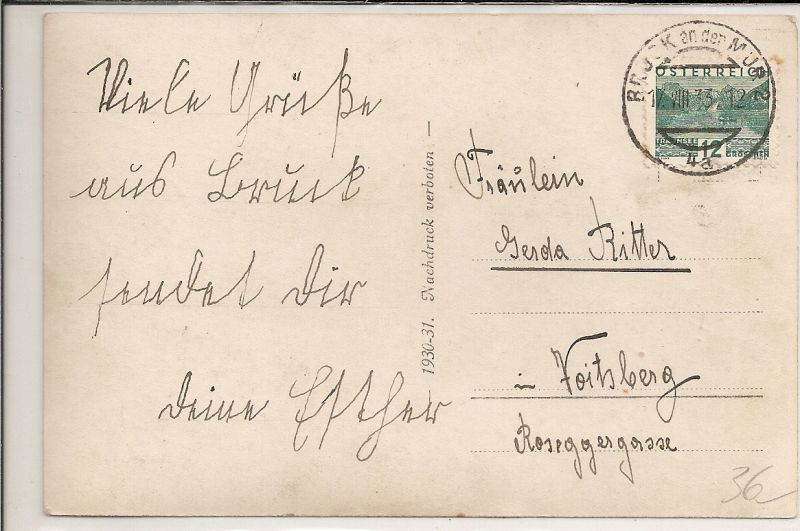 Viele Grüße
aus Bruck
sendet Dir
Deine Esther
1930-31. Nachdruck verboten —
BRUCK an der MUR 2
17. VIII 33 12
4a
ÖSTERREICH
12
GROSCHEN
Fräulein
Gerda Ritter
in Voitsberg
Roseggergasse
36